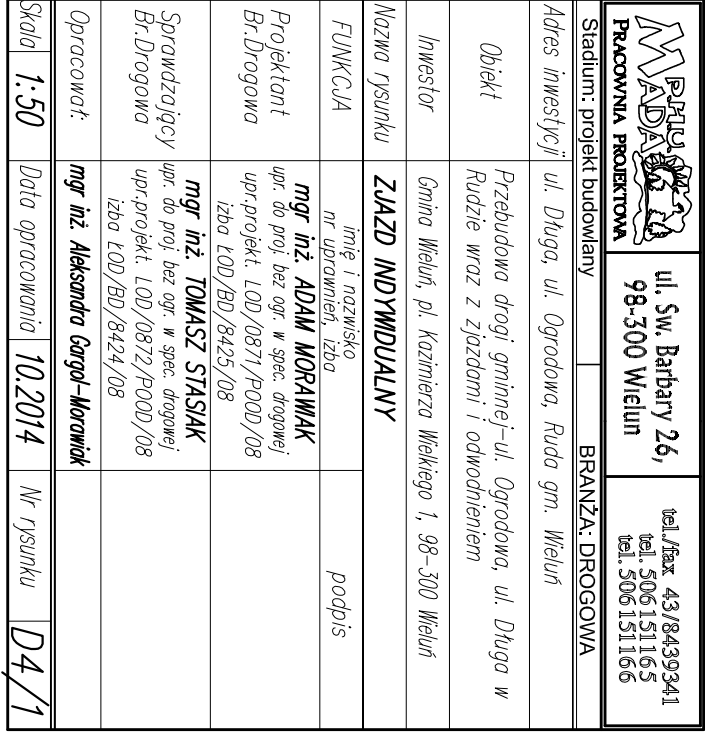 P.H.U.
MADA
PRACOWNIA PROJEKTOWA
ul. Sw. Barbary 26,
98-300 Wielun
tel./fax 43/8439341
tel. 506151165
tel. 506151166
Stadium: projekt budowlany
BRANŻA: DROGOWA
Adres inwestycji
ul. Długa, ul. Ogrodowa, Ruda gm. Wieluń
Obiekt
Przebudowa drogi gminnej-ul. Ogrodowa, ul. Długa w
Rudzie wraz z zjazdami i odwodnieniem
Inwestor
Gmina Wieluń, pl. Kazimierza Wielkiego 1, 98-300 Wieluń
Nazwa rysunku
ZJAZD INDYWIDUALNY
FUNKCJA
imię i nazwisko
nr uprawnień, izba
podpis
Projektant
Br.Drogowa
mgr inż. ADAM MORAWIAK
upr. do proj. bez ogr. w spec. drogowej
upr.projekt. LOD/0871/POOD/08
izba ŁOD/BD/8425/08
Sprawdzający
Br.Drogowa
mgr inż. TOMASZ STASIAK
upr. do proj. bez ogr. w spec. drogowej
upr.projekt. LOD/0872/POOD/08
izba ŁOD/BD/8424/08
Opracował:
mgr inż. Aleksandra Gargol-Morawiak
Skala
1:50
Data opracowania
10.2014
Nr rysunku
D4/1